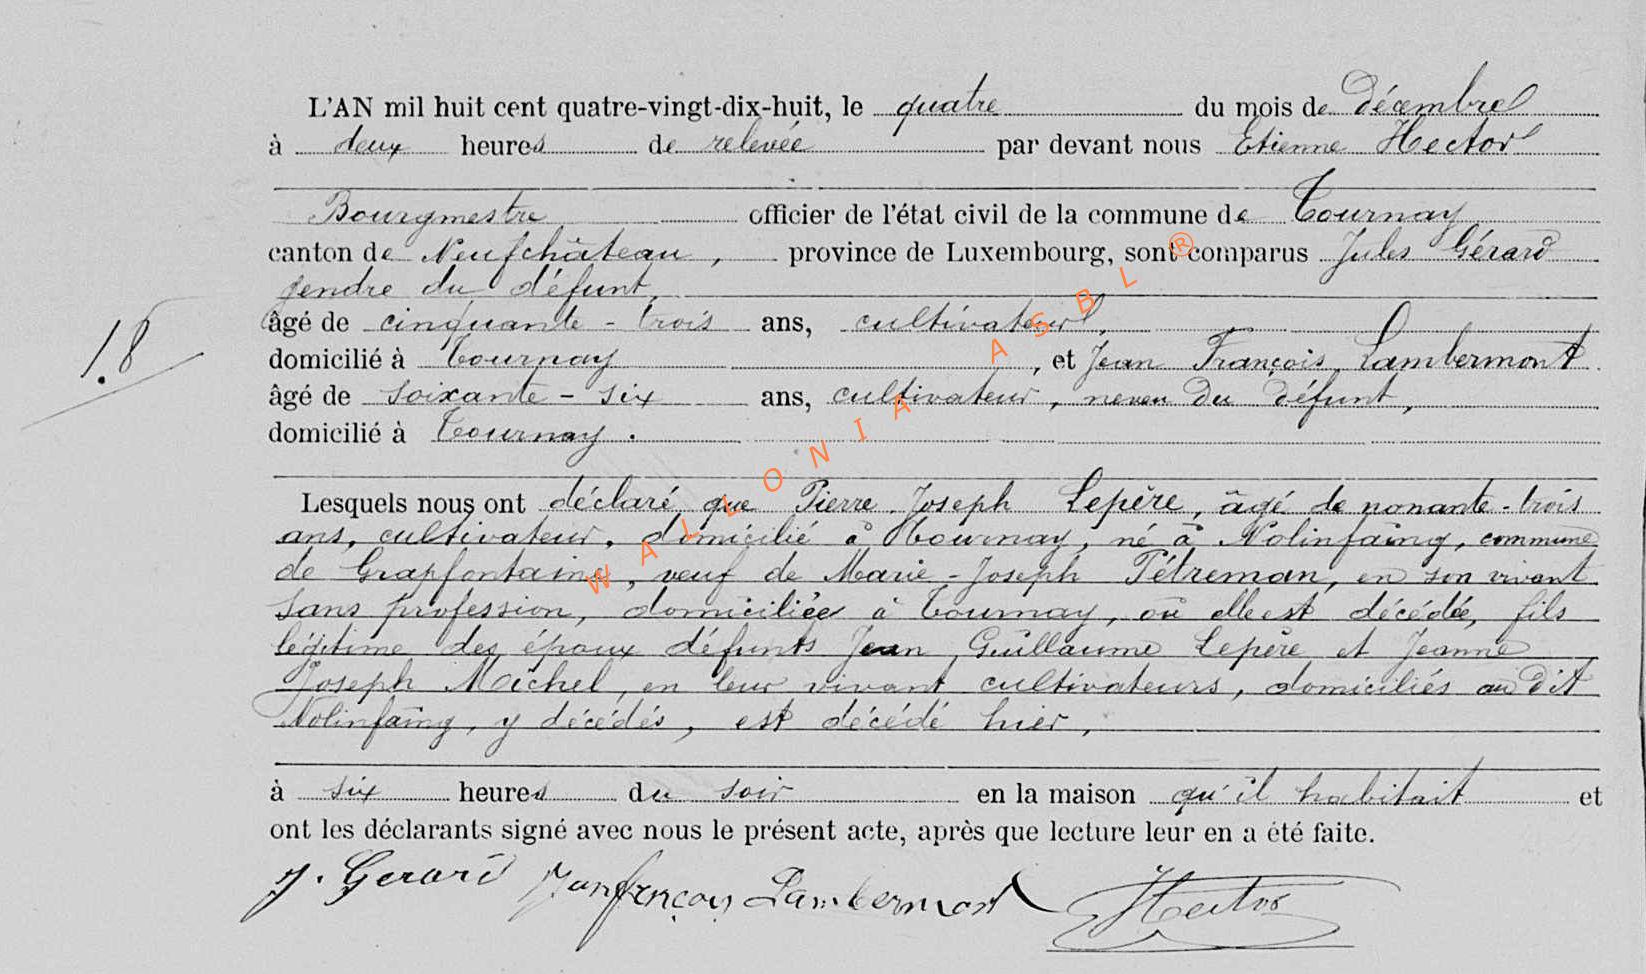 L'AN mil huit cent quatre-vingt-dix-huit, le quatre du mois de décembre
à deux heures de relevée par devant nous Etienne Hector
Bourgmestre officier de l'état civil de la commune de Tournay
canton de Neufchâteau, province de Luxembourg, sont comparus Jules Gérard
gendre du défunt,
âgé de cinquante-trois ans, cultivateur,
18
domicilié à Tournay, et Jean François Lambermont
âgé de soixante-six ans, cultivateur, neveu du défunt,
domicilié à Tournay.
Lesquels nous ont déclaré que Pierre Joseph Lepère, âgé de nonante-trois
ans, cultivateur, domicilié à Tournay, né à Nolinfaing, commune
de Grapfontaine, veuf de Marie-Joseph Pétreman, en son vivant
sans profession, domiciliée à Tournay, où elle est décédée, fils
légitime des époux défunts Jean Guillaume Lepère et Jeanne
Joseph Michel, en leur vivant cultivateurs, domiciliés au dit
Nolinfaing, y décédés, est décédé hier,
à six heures du soir en la maison qu'il habitait et
ont les déclarants signé avec nous le présent acte, après que lecture leur en a été faite.
J. Gerard Jeanfrançois Lambermont Hector
WALLONIA ASBL ®